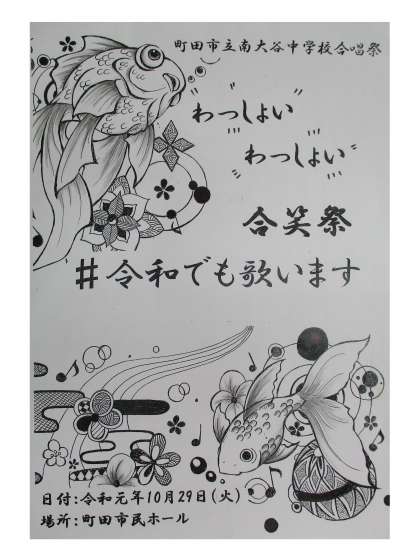 町田市立南大谷中学校合唱祭
わっしょい
わっしょい
合笑祭
#令和でも歌います
日付:令和元年10月29日(火)
場所:町田市民ホール